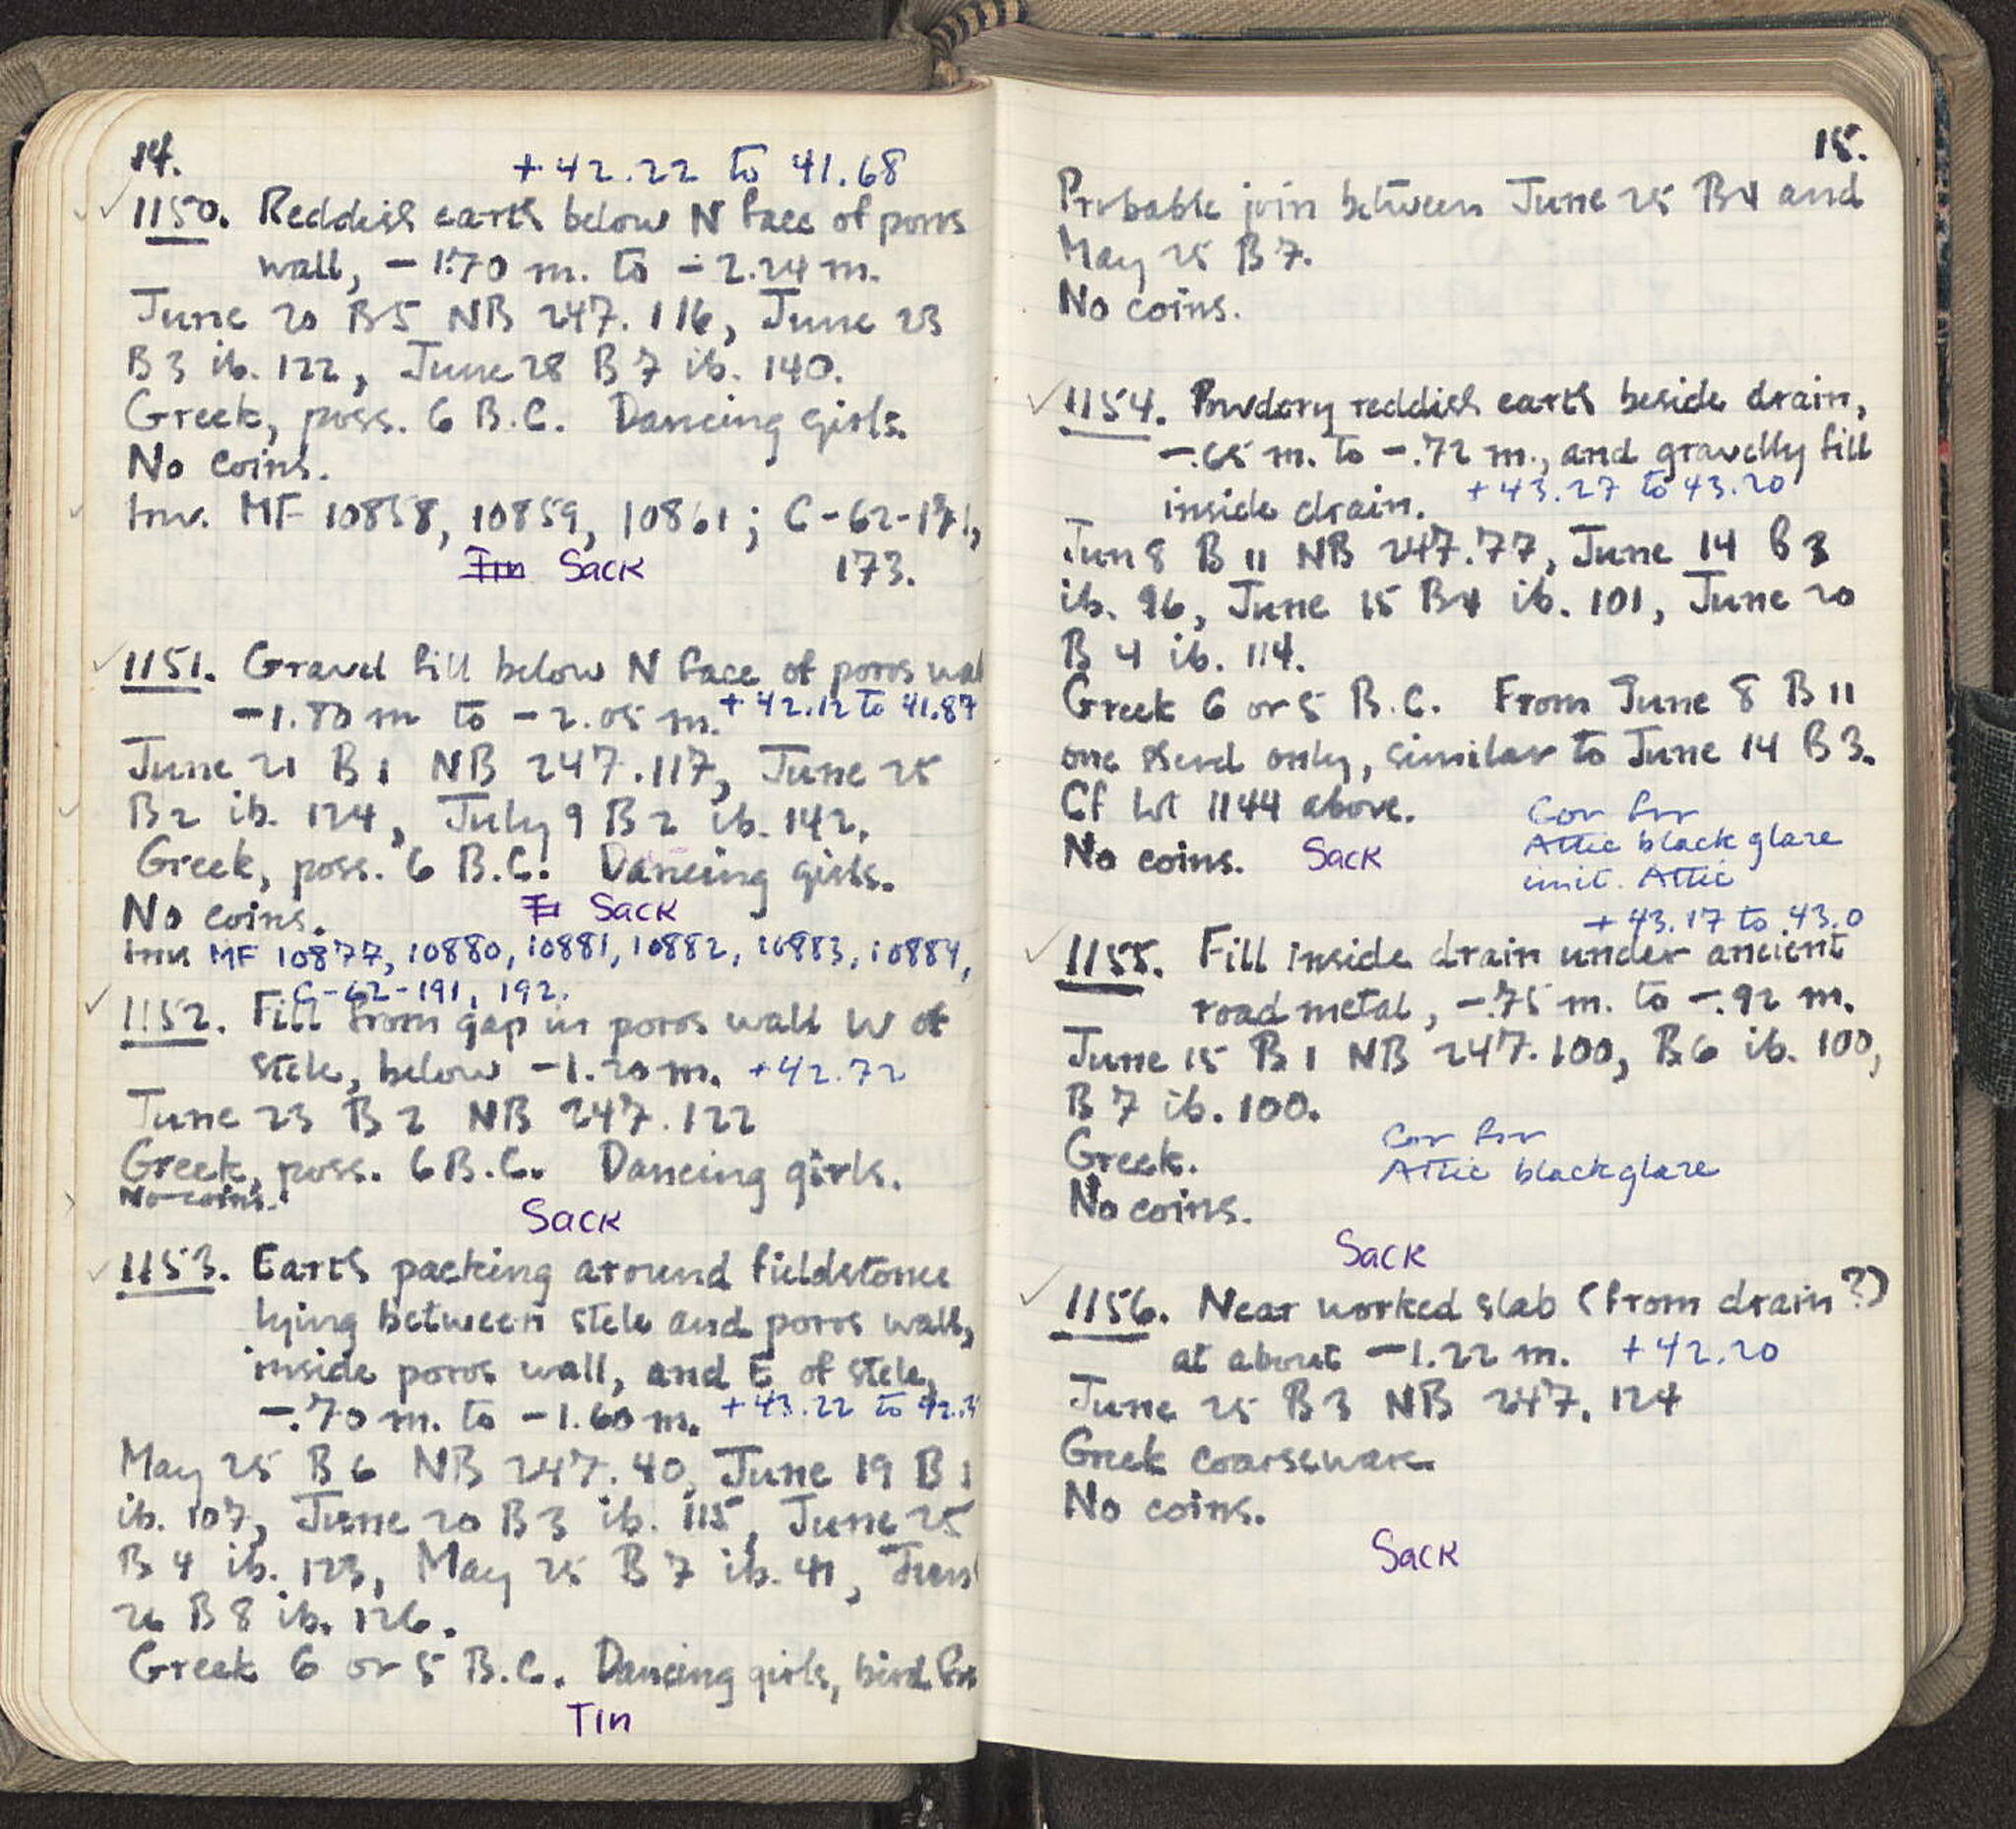 14.
+42.22 to 41.68
1150. Reddish earth below N face of poros
wall, -1.70 m. to -2.24 m.
June 20 B5 NB 247.116, June 23
B3 ib. 122, June 28 B7 ib. 140.
Greek, poss. 6 B.C. Dancing girls.
No coins.
Inv. MF 10858, 10859, 10861; C-62-171,
Sack 173.
1151. Gravel fill below N face of poros wal
-1.80 m to -2.05 m. +42.12 to 41.87
June 21 B1 NB 247.117, June 25
B2 ib. 124, July 9 B2 ib. 142.
Greek, poss. 6 B.C. Dancing girls.
No coins. Sack
Inv MF 10877, 10880, 10881, 10882, 10883, 10884,
C-62-191, 192.
1152. Fill from gap in poros wall W of
stele, below -1.20 m. +42.72
June 23 B2 NB 247.122
Greek, poss. 6 B.C. Dancing girls.
No coins.
Sack
1153. Earth packing around fieldstones
lying between stele and poros wall,
inside poros wall, and E of stele,
-.70 m. to -1.60 m. +43.22 to 42.3
May 25 B6 NB 247.40, June 19 B1
ib. 107, June 20 B3 ib. 115, June 25
B4 ib. 123, May 25 B7 ib. 41, June
26 B8 ib. 126.
Greek 6 or 5 B.C. Dancing girls, bird
Tin
15.
Probable join between June 25 B4 and
May 25 B7.
No coins.
1154. Powdery reddish earth beside drain,
-.65 m. to -.72 m., and gravelly fill
inside drain. +43.27 to 43.20
Jun 8 B11 NB 247.77, June 14 B3
ib. 96, June 15 B4 ib. 101, June 20
B4 ib. 114.
Greek 6 or 5 B.C. From June 8 B11
one sherd only, similar to June 14 B3.
Cf Lot 1144 above.
No coins. Sack
Cor
Attic black glaze
imit. Attic
+43.17 to 43.0
1155. Fill inside drain under ancient
road metal, -.75 m. to -.92 m.
June 15 B1 NB 247.100, B6 ib. 100,
B7 ib. 100.
Greek.
Cor
Attic black glaze
No coins.
Sack
1156. Near worked slab (from drain?)
at about -1.22 m. +42.20
June 25 B3 NB 247.124
Greek coarseware.
No coins.
Sack